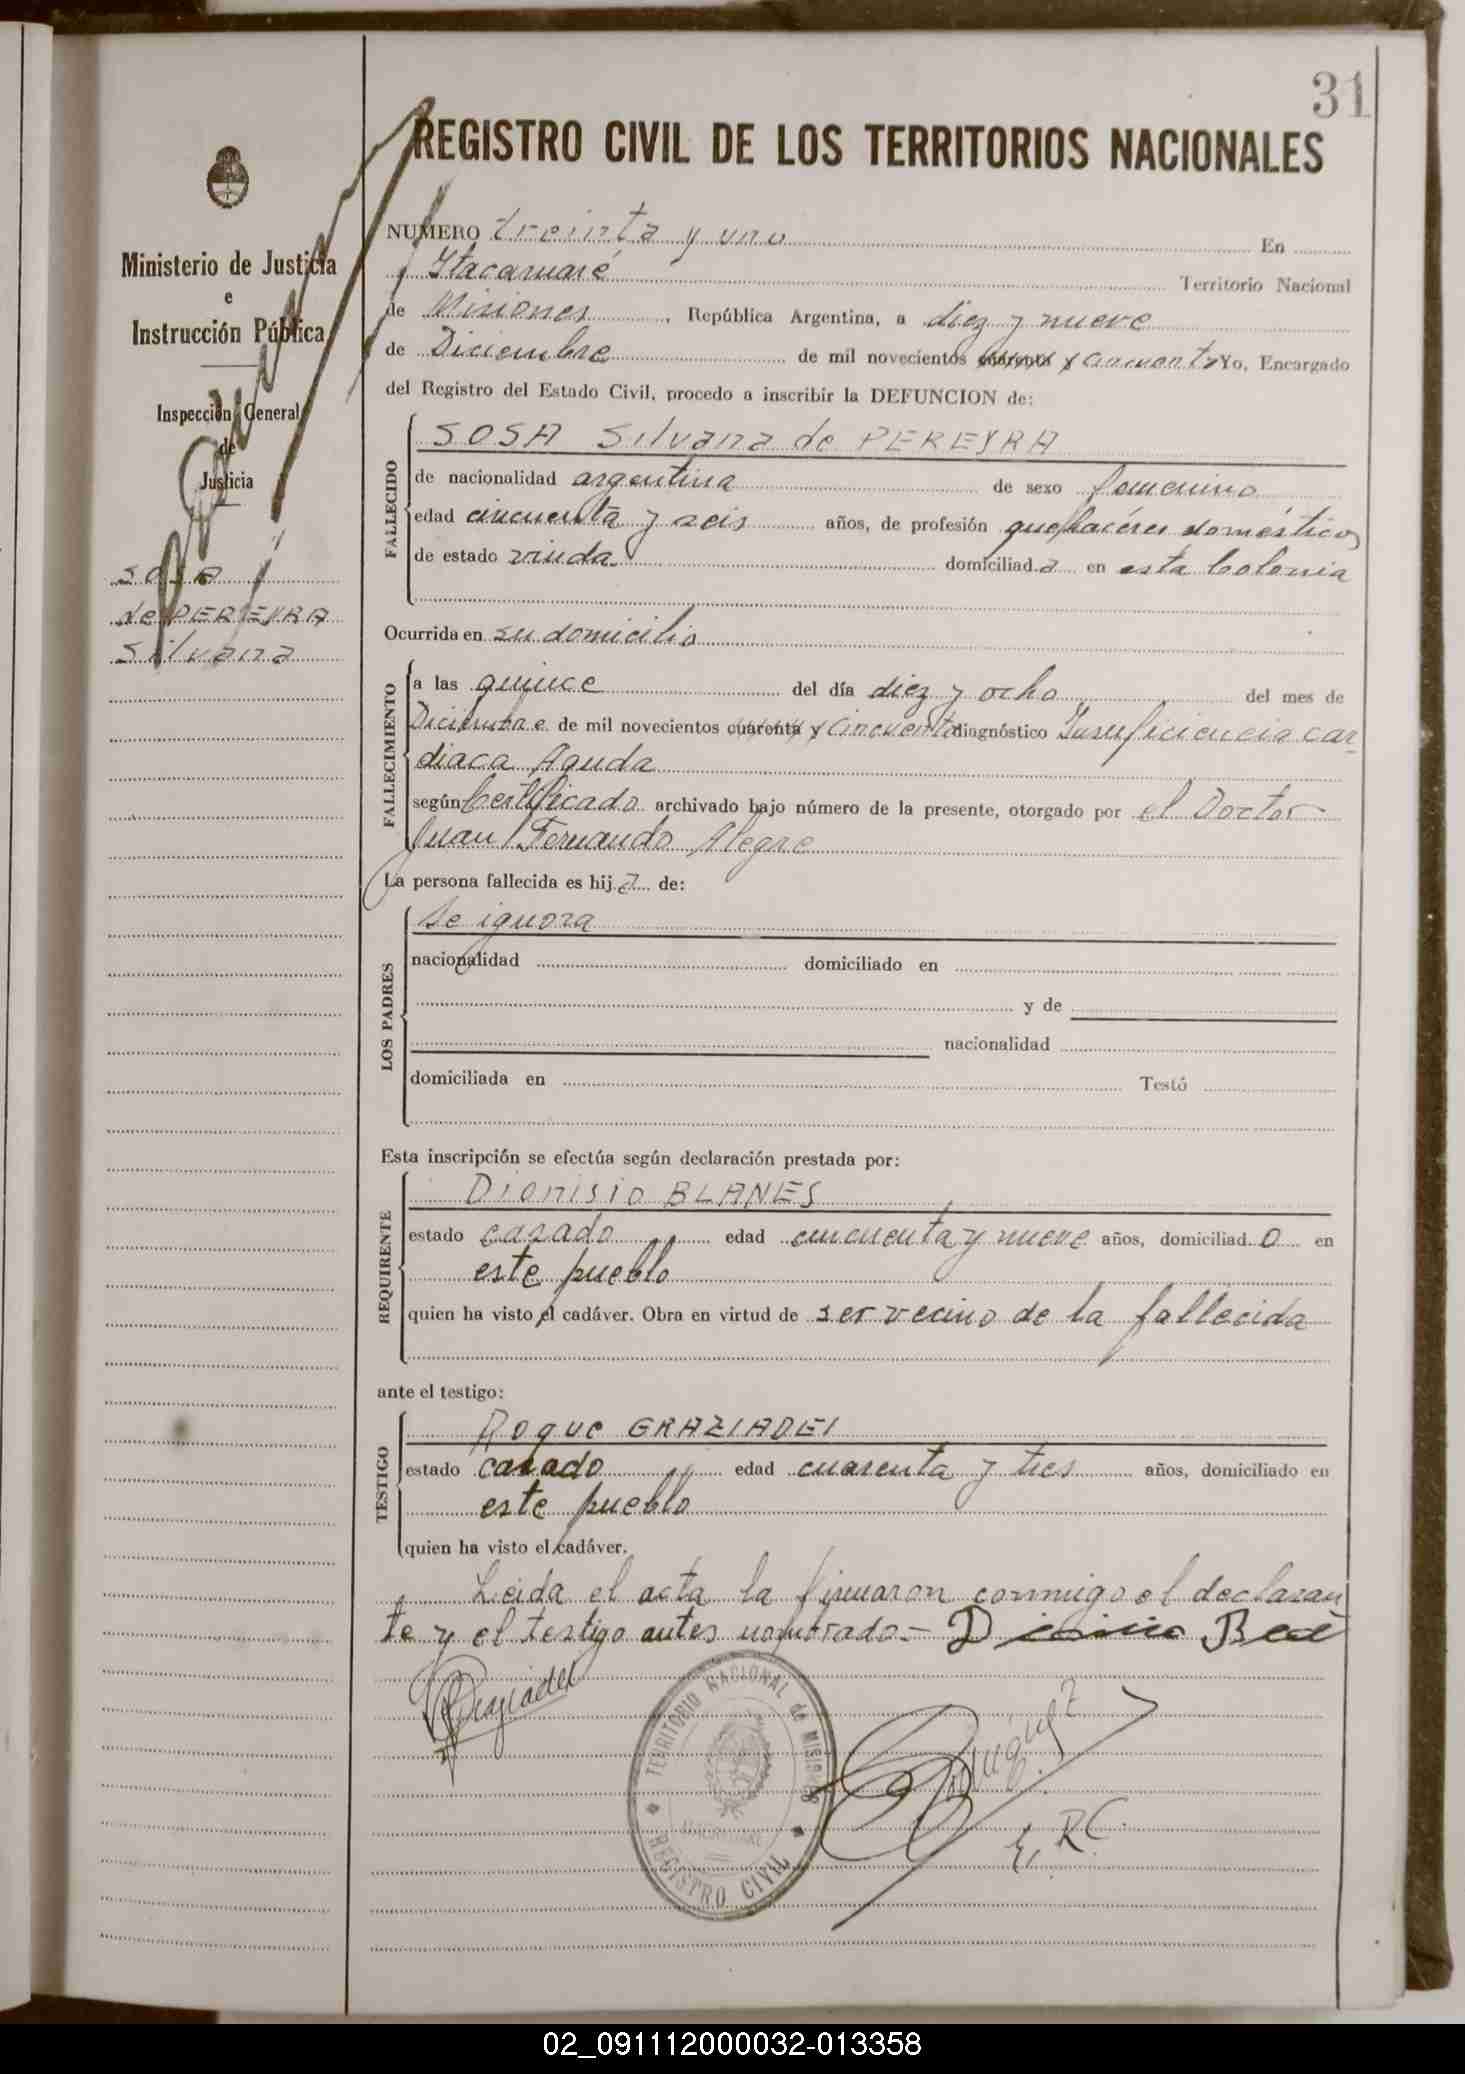 31
REGISTRO CIVIL DE LOS TERRITORIOS NACIONALES
Ministerio de Justicia
e
Instrucción Pública
Inspección General
de
Justicia
SOSA
de PEREYRA
Silvana
NUMERO treinta y uno En
Itacaruaré Territorio Nacional
de Misiones, República Argentina, a diez y nueve
de Diciembre de mil novecientos cuarenta y cincuenta Yo, Encargado
del Registro del Estado Civil, procedo a inscribir la DEFUNCION de:
FALLECIDO
SOSA Silvana de PEREYRA
de nacionalidad argentina de sexo femenino
edad cincuenta y seis años, de profesión quehacéres doméstico
de estado viuda. domiciliada en esta Colonia
Ocurrida en su domicilio
FALLECIMIENTO
a las quince del día diez y ocho del mes de
Diciembre de mil novecientos cuarenta y cincuenta diagnóstico Insuficiencia car-
diaca Aguda
según Certificado archivado bajo número de la presente, otorgado por el Doctor
Juan Fernando Alegre
La persona fallecida es hija de:
LOS PADRES
Se ignora
nacionalidad domiciliado en
y de
nacionalidad
domiciliada en Testó
Esta inscripción se efectúa según declaración prestada por:
REQUIRENTE
Dionisio BLANES
estado casado edad cincuenta y nueve años, domiciliado en
este pueblo
quien ha visto el cadáver. Obra en virtud de ser vecino de la fallecida
ante el testigo:
TESTIGO
Roque GRAZIADEI
estado casado edad cuarenta y tres años, domiciliado en
este pueblo
quien ha visto el cadáver.
Leida el acta la firmaron conmigo el declaran
te y el testigo antes nombrado.-
Graziadei
TERRITORIO NACIONAL de MISIONES
REGISTRO CIVIL
E. R. C.
02_091112000032-013358